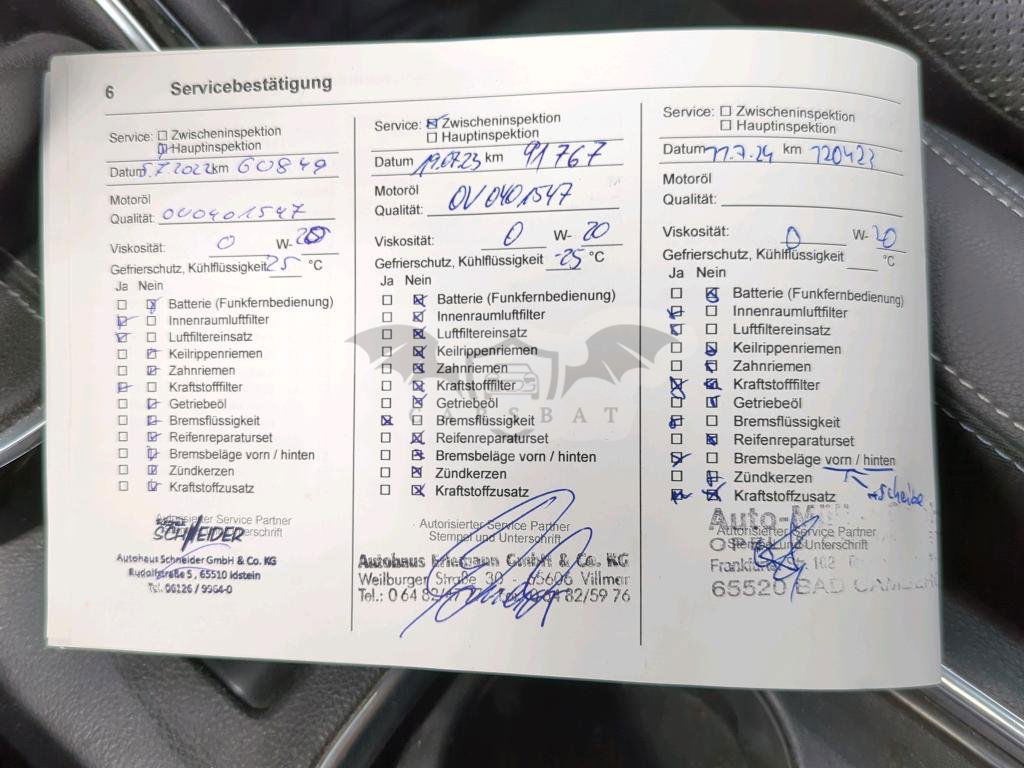 6 Servicebestätigung
Service: Zwischeninspektion
Hauptinspektion
Datum 5.7.2022 km 60849
Motoröl
Qualität: OV0401547
Viskosität: 0 W- 20
Gefrierschutz, Kühlflüssigkeit 25 °C
Ja Nein
Batterie (Funkfernbedienung)
Innenraumluftfilter
Luftfiltereinsatz
Keilrippenriemen
Zahnriemen
Kraftstofffilter
Getriebeöl
Bremsflüssigkeit
Reifenreparaturset
Bremsbeläge vorn / hinten
Zündkerzen
Kraftstoffzusatz
Autorisierter Service Partner
SCHNEIDER
Autohaus Schneider GmbH & Co. KG
Rudolfstraße 5, 65510 Idstein
Tel. 06126 / 9964-0
Service: Zwischeninspektion
Hauptinspektion
Datum 19.07.23 km 91767
Motoröl
Qualität: OV0401547
Viskosität: 0 W- 20
Gefrierschutz, Kühlflüssigkeit -25 °C
Ja Nein
Batterie (Funkfernbedienung)
Innenraumluftfilter
Luftfiltereinsatz
Keilrippenriemen
Zahnriemen
Kraftstofffilter
Getriebeöl
Bremsflüssigkeit
Reifenreparaturset
Bremsbeläge vorn / hinten
Zündkerzen
Kraftstoffzusatz
Autorisierter Service Partner
Stempel und Unterschrift
Autohaus GmbH & Co. KG
Weilburger Straße 30 - 65606 Villmar
Tel.: 0 64 82/59 76
Service: Zwischeninspektion
Hauptinspektion
Datum 11.7.24 km 120423
Motoröl
Qualität:
Viskosität: 0 W- 20
Gefrierschutz, Kühlflüssigkeit °C
Ja Nein
Batterie (Funkfernbedienung)
Innenraumluftfilter
Luftfiltereinsatz
Keilrippenriemen
Zahnriemen
Kraftstofffilter
Getriebeöl
Bremsflüssigkeit
Reifenreparaturset
Bremsbeläge vorn / hinten
Zündkerzen
Kraftstoffzusatz
+Scheibe
Autorisierter Service Partner
Stempel und Unterschrift
65520 BAD
CARSBAT